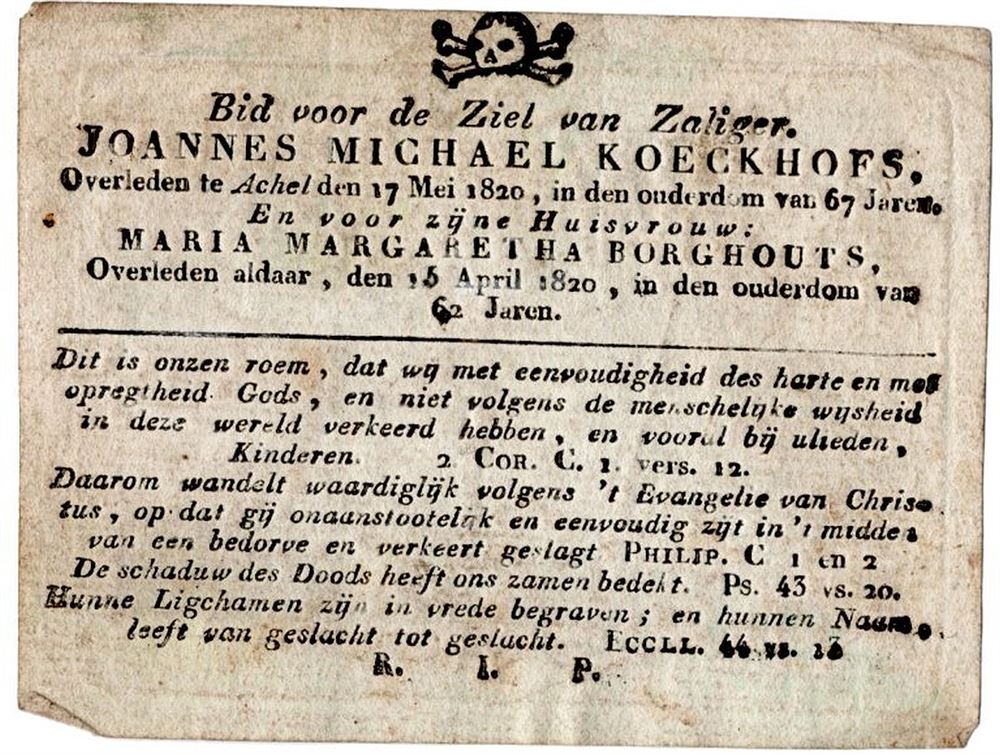 Bid voor de Ziel van Zaliger.
JOANNES MICHAEL KOECKHOFS,
Overleden te Achel den 17 Mei 1820, in den ouderdom van 67 Jaren.
En voor zijne Huisvrouw:
MARIA MARGARETHA BORGHOUTS,
Overleden aldaar, den 15 April 1820, in den ouderdom van
62 Jaren.
Dit is onzen roem, dat wij met eenvoudigheid des harte en met
opregtheid Gods, en niet volgens de menschelijke wijsheid
in deze wereld verkeerd hebben, en vooral bij ulieden,
Kinderen. 2 COR. C. 1. vers. 12.
Daarom wandelt waardiglijk volgens 't Evangelie van Chris-
tus, op dat gij onaanstootelijk en eenvoudig zijt in 't midden
van een bedorve en verkeert geslagt PHILIP. C 1 en 2
De schaduw des Doods heeft ons zamen bedekt. Ps. 43 vs. 20.
Hunne Ligchamen zijn in vrede begraven; en hunnen Naam
leeft van geslacht tot geslacht. ECCLL. 44 vs. 13
R. I. P.